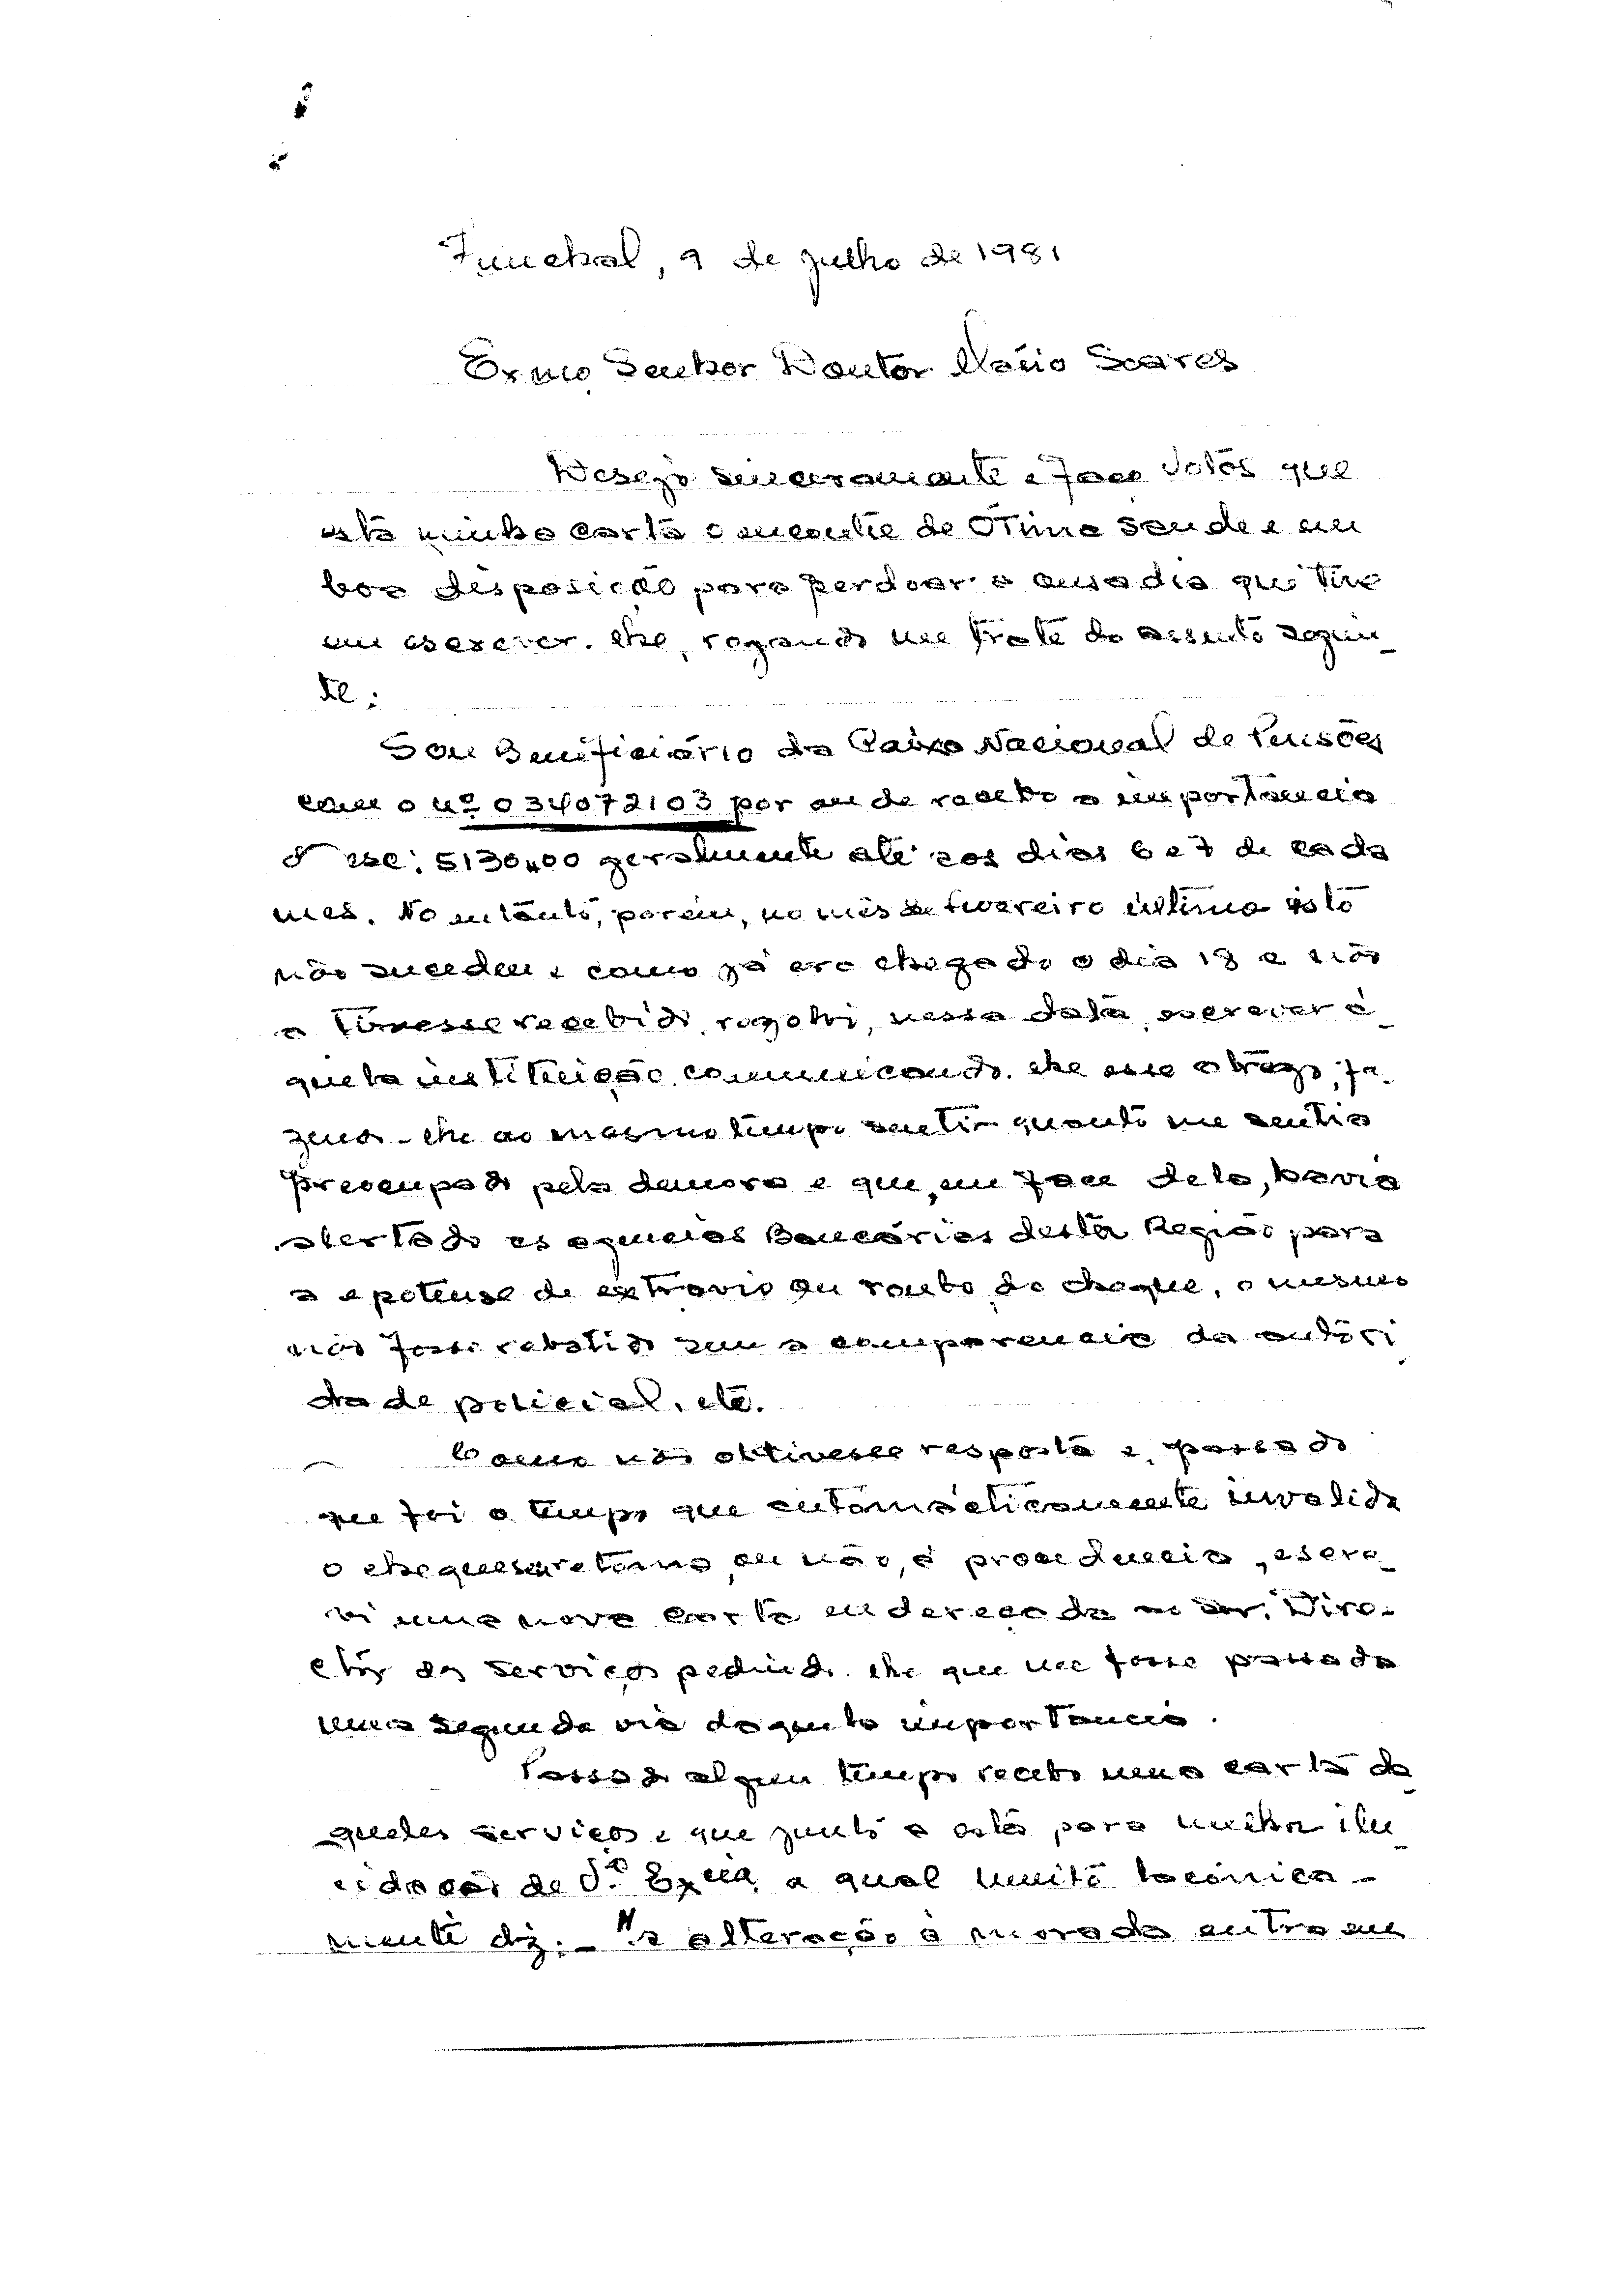 Funchal, 9 de julho de 1981
Exmo Senhor Doutor Mário Soares
Desejo sinceramente e faço votos que
esta minha carta o encontre de ótima saúde e em
boa disposição para perdoar a ousadia que tive
em escrever-lhe, rogando me trate do assunto seguin-
te:
Sou Benificiário da Caixa Nacional de Pensões
com o nº 034072103 por onde recebo a importância
d esc: 5130,00 geralmente até aos dias 6 e 7 de cada
mês. No entanto, porém, no mês de fevereiro último isto
não sucedeu e como já era chegado o dia 18 e não
a tivesse recebido, resolvi, nessa data, escrever à-
quela instituição comunicando-lhe esse atrazo, fa-
zendo-lhe ao mesmo tempo sentir quanto me sentia
preocupado pela demora e que, em face dela, havia
alertado as agencias Bancárias desta Região para
a epotense de extravio ou roubo do cheque, o mesmo
não fosse rebatido sem a comparencia da autori
dade policial, etc.
Como não obtivesse resposta e, passado
que foi o tempo que automáticamente invalida
o cheque seu retorno, ou não, à procedencia, escre-
vi uma nova carta endereçada ao Snr. Dire-
ctor dos serviços pedindo-lhe que me fosse passada
uma segunda via daquela importancia.
Passado algum tempo recebo uma carta da
queles serviços e que junto a esta para melhor ilu
cidação de Sª Excia, a qual muito laconica-
mente diz:- "a alteração à morada entra em